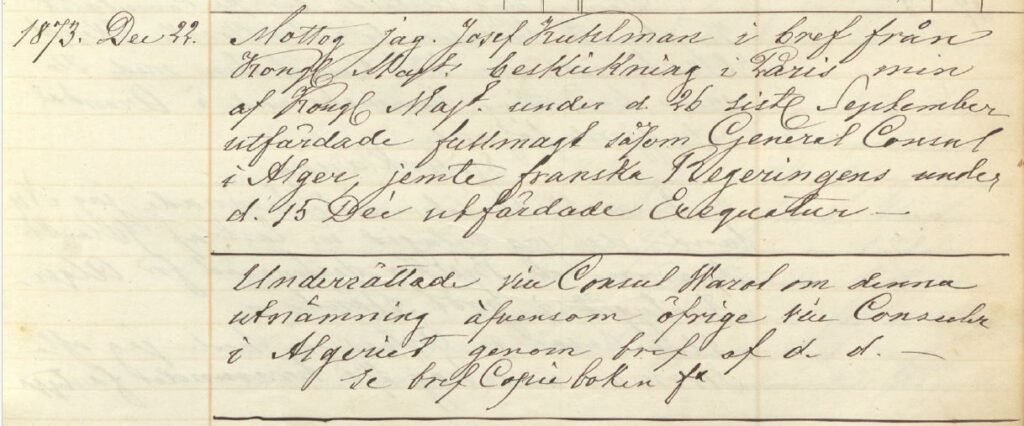 1873. Dec 22. Mottog jag. Josef Kuhlman i bref från
Kongl Majts beskickning i Paris min
af Kongl Majt. under d. 26 sistl September
utfärdade fullmagt såsom General Consul
i Alger, jemte franska Regeringens under
d. 15 Dec utfärdade Exequatur —
Underrättade vice Consul Warot om denna
utnämning äfvensom öfrige vice Consuler
i Algeriet genom bref af d. d. —
se bref Copie boken